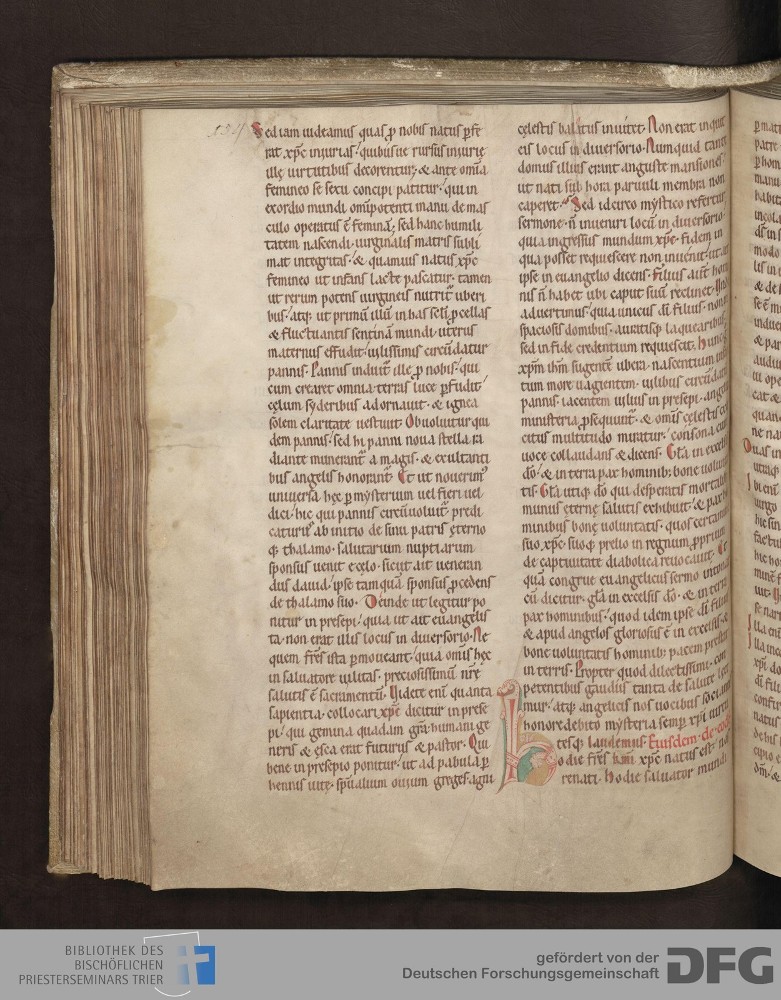 Sed iam uideamus quas ꝑ nobis natus ꝑfe
rat xp̄c iniurias. quibusue rursus iniurię
illę uirtutibus decorentur; & ante om̄ia
femineo se sexu concipi patitur. qui in
exordio mundi om̄ipotenti manu de mas
culo operatus ē feminā; sed hanc humili
tatem nascendi. uirginalis matris subli
mat integritas. & quamuis natus xp̄c
femineo ut infans lacte pascatur. tamen
ut rerum potens uirgineis nutrit᷑ uberi
bus. atq; ut primū illū in has scłi ꝓcellas
& fluctuantis sentinā mundi uterus
maternus effudit. uilissimis circūdatur
pannis. Pannis induit᷑ ille ꝓ nobis. qui
cum crearet omnia. terras luce ꝑfudit.
cęlum syderibus adornauit. & ignea
solem claritate uestiuit. Obuoluitur qui
dem pannis. sed hi panni noua stella ra
diante munerant᷑ a magis. & exultanti
bus angelis honorant᷑. Et ut nouerim᷒
uniuersa hęc ꝑ mysterium uel fieri uel
dici. hic qui pannis circūuoluit᷑. predi
catur᷑ ab initio de sinu patris ęterno
q; thalamo. salutarium nuptiarum
sponsus uenit e cęlo. sicut ait ueneran
dus dauid. ipse tamquā sponsus ꝓcedens
de thalamo suo. Deinde ut legitur po
nitur in presepi. quia ut ait euangelis
ta. non erat illis locus in diuersorio. Ne
quem frēs ista ꝑmoueant. quia om̄is hęc
in saluatore uilitas. preciosissimū nr̄ę
salutis ē sacramentū. Uidete enī quanta
sapientia. collocari xp̄c dicitur in prese
pi. qui gemina quadam gr̄a. humani ge
neris & esca erat futurus & pastor. Qui
bene in presepio ponitur. ut ad pabula ꝑ
hennis uitę. sp̄ualium ouium greges. agni
cęlestis balatus inuitet. Non erat inquit
eis locus in diuersorio. Numquid tante
domus illius erant anguste mansiones.
ut nati sub hora paruuli membra non
caperet. Sed idcirco mystico refertur
sermone. n̄ inueniri locū in diuersorio.
quia ingressus mundum xp̄c. fidem in
qua posset requiescere non inuenit. ut ait
ipse in euangelio dicens. Filius aūt homi
nis n̄ habet ubi caput suū reclinet.
aduertimus. quia unicus dī filius. non in
spaciosis domibus. auratisq; laquearibus.
sed in fide credentium requiescit. Hunc
xp̄m ihm̄ sugentē ubera. nascentium
tum more uagientem. uilibus circūdatū
pannis. iacentem uilius in presepi. angeli
ministeria ꝓsequunt᷑. & om̄is cęlestis exer
citus multitudo miratur. consona cum
uoce collaudans & dicens. Gl̄a in excelsis
dō. & in terra pax hominib; bone uolunta
tis. Gl̄a utiq; dō qui desperatis mortalib;
munus ęternę salutis exhibuit. & pax ho
minibus bonę uoluntatis. quos certamine
suo xp̄c. suoq; prelio in regnum ꝓprium
de captiuitate diabolica reuocauit. Et
quā congrue euangelicus sermo
cū dicitur. gl̄a in excelsis dō. & in terra
pax hominibus. quod idem ipse dī filius
& apud angelos gloriosus ē in excelsis. &
bone uoluntatis hominib; pacem prestat
in terris. Propter quod dilectissimi. com
petentibus gaudiis tanta de salute lęte
mur. atq; angelicis nos uocibus sociam
honore debito mysteria semꝑ xp̄i curtu
tesq; laudemus. Eiusdem. de eod.
Hodie frēs km̄i xp̄c natus est. nos
renati. Hodie saluator mundi
BIBLIOTHEK DES
BISCHÖFLICHEN
PRIESTERSEMINARS TRIER
gefördert von der
Deutschen Forschungsgemeinschaft
DFG